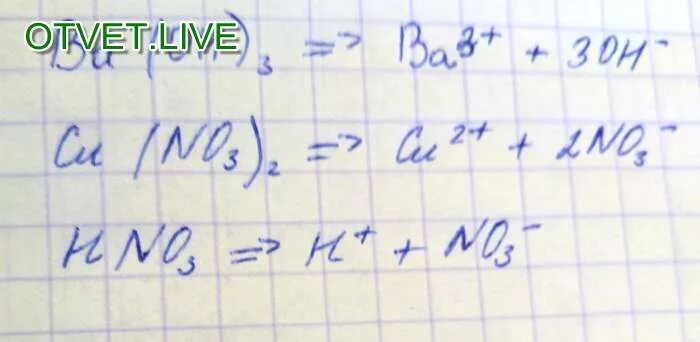 OTVET.LIVE
Ba(OH)₃ => Ba³⁺ + 3OH⁻
Cu(NO₃)₂ => Cu²⁺ + 2NO₃⁻
HNO₃ => H⁺ + NO₃⁻